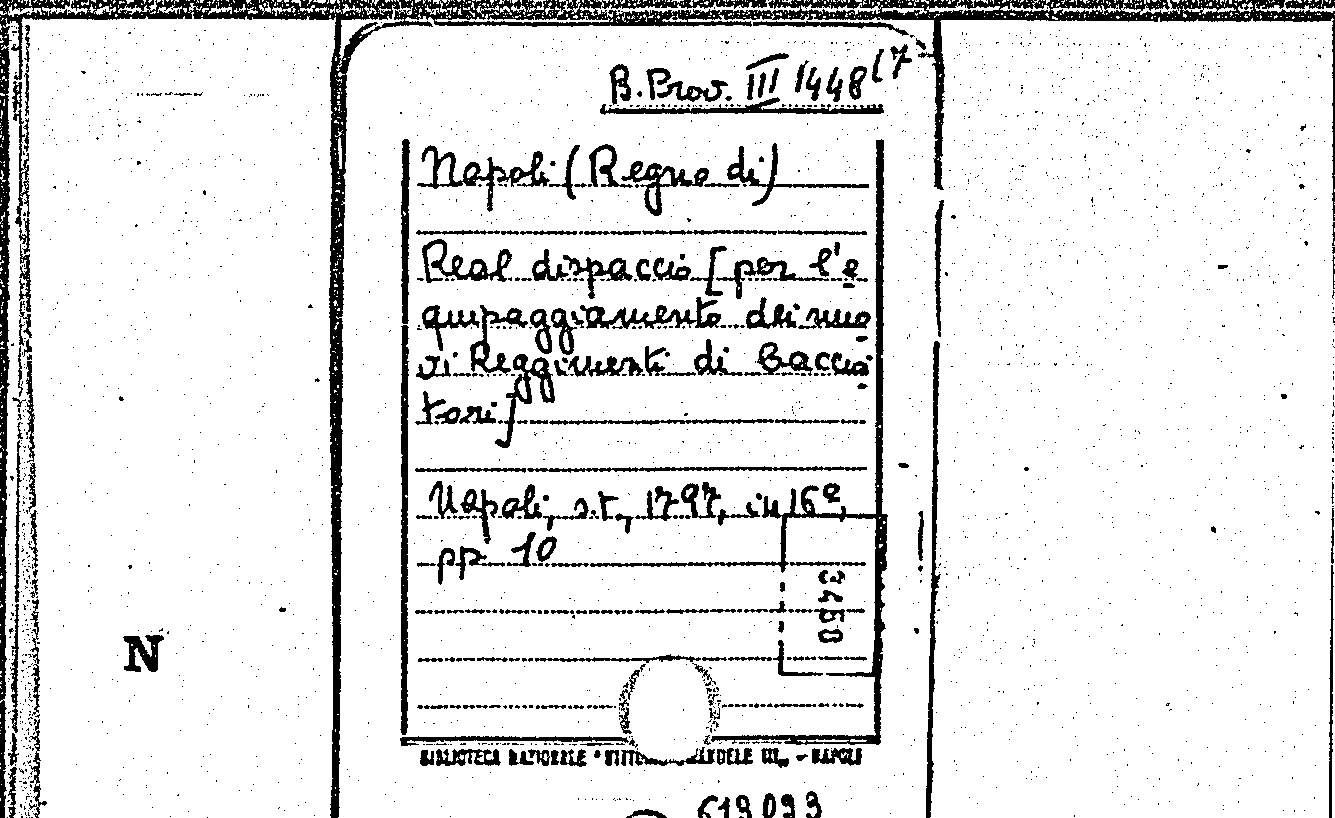 B. Prov. III 1448(7
Napoli (Regno di)
Real dispaccio [per l'e
quipaggiamento dei nuo
vi Reggimenti di Caccia
tori]
Napoli, s.t., 1797, in 16º,
pp. 10
3450
N
BIBLIOTECA NAZIONALE "VITTORIO EMANUELE III" - NAPOLI
619093